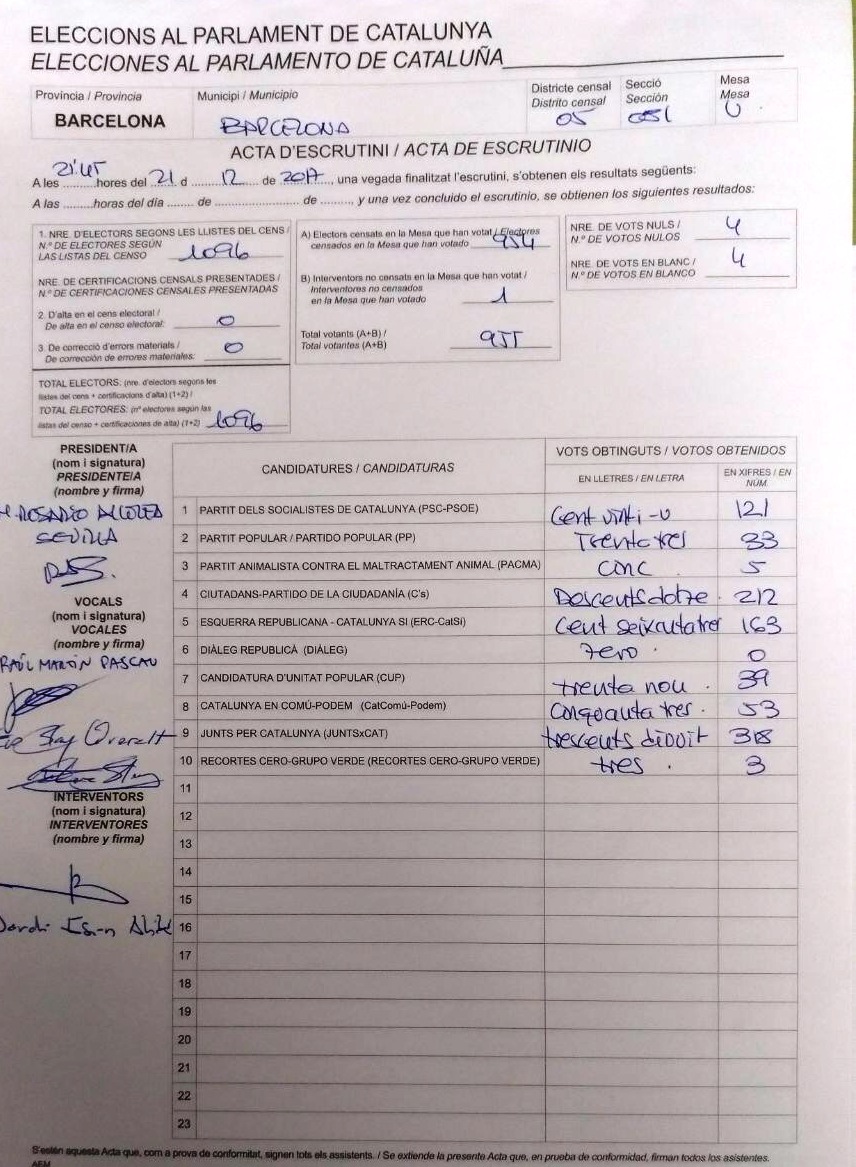 ELECCIONS AL PARLAMENT DE CATALUNYA
ELECCIONES AL PARLAMENTO DE CATALUÑA
Província / Provincia
BARCELONA
Municipi / Municipio
BARCELONA
Districte censal
Distrito censal
05
Secció
Sección
051
Mesa
Mesa
U
ACTA D'ESCRUTINI / ACTA DE ESCRUTINIO
A les 21'45 hores del 21 d 12 de 2017, una vegada finalitzat l'escrutini, s'obtenen els resultats següents:
A las ........horas del día ....... de ................ de ........., y una vez concluido el escrutinio, se obtienen los siguientes resultados:
1. NRE. D'ELECTORS SEGONS LES LLISTES DEL CENS /
N.º DE ELECTORES SEGÚN
LAS LISTAS DEL CENSO 1096
NRE. DE CERTIFICACIONS CENSALS PRESENTADES /
N.º DE CERTIFICACIONES CENSALES PRESENTADAS
2. D'alta en el cens electoral /
De alta en el censo electoral: 0
3. De correcció d'errors materials /
De corrección de errores materiales: 0
TOTAL ELECTORS: (nre. d'electors segons les
llistes del cens + certificacions d'alta) (1+2) /
TOTAL ELECTORES: (nº electores según las
listas del censo + certificaciones de alta) (1+2) 1096
A) Electors censats en la Mesa que han votat / Electores
censados en la Mesa que han votado 954
B) Interventors no censats en la Mesa que han votat /
Interventores no censados
en la Mesa que han votado 1
Total votants (A+B) /
Total votantes (A+B) 955
NRE. DE VOTS NULS /
N.º DE VOTOS NULOS 4
NRE. DE VOTS EN BLANC /
N.º DE VOTOS EN BLANCO 4
PRESIDENT/A
(nom i signatura)
PRESIDENTE/A
(nombre y firma)
ROSARIO ALCOLEA
SEVILLA
VOCALS
(nom i signatura)
VOCALES
(nombre y firma)
RAÚL MARTÍN PASCAU
INTERVENTORS
(nom i signatura)
INTERVENTORES
(nombre y firma)
CANDIDATURES / CANDIDATURAS
VOTS OBTINGUTS / VOTOS OBTENIDOS
EN LLETRES / EN LETRA
EN XIFRES / EN NÚM.
1 PARTIT DELS SOCIALISTES DE CATALUNYA (PSC-PSOE) Cent vinti-u 121
2 PARTIT POPULAR / PARTIDO POPULAR (PP) Trenta tres 33
3 PARTIT ANIMALISTA CONTRA EL MALTRACTAMENT ANIMAL (PACMA) cinc 5
4 CIUTADANS-PARTIDO DE LA CIUDADANÍA (C's) Doscents dotze. 212
5 ESQUERRA REPUBLICANA - CATALUNYA SI (ERC-CatSí) Cent seixantatres 163
6 DIÀLEG REPUBLICÀ (DIÀLEG) zero. 0
7 CANDIDATURA D'UNITAT POPULAR (CUP) trenta nou. 39
8 CATALUNYA EN COMÚ-PODEM (CatComú-Podem) Cinquanta tres. 53
9 JUNTS PER CATALUNYA (JUNTSxCAT) trescents divuit 318
10 RECORTES CERO-GRUPO VERDE (RECORTES CERO-GRUPO VERDE) tres. 3
11
12
13
14
15
16
17
18
19
20
21
22
23
S'estén aquesta Acta que, com a prova de conformitat, signen tots els assistents. / Se extiende la presente Acta que, en prueba de conformidad, firman todos los asistentes.